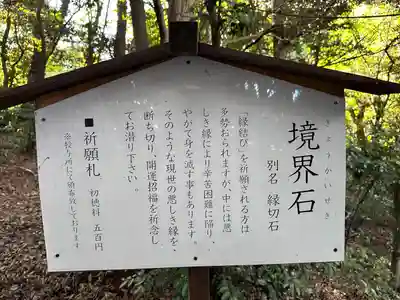 きょうかいせき
境界石
別名 縁切石
「縁結び」を祈願される方は
多勢おられますが、中には悪
しき縁により辛苦困難に陥り、
やがて身を滅す事もあります。
そのような現世の悪しき縁を、
断ち切り、開運招福を祈念し
てお潜り下さい。
■祈願札 初穂料 五百円
※授与所にて頒布致しております